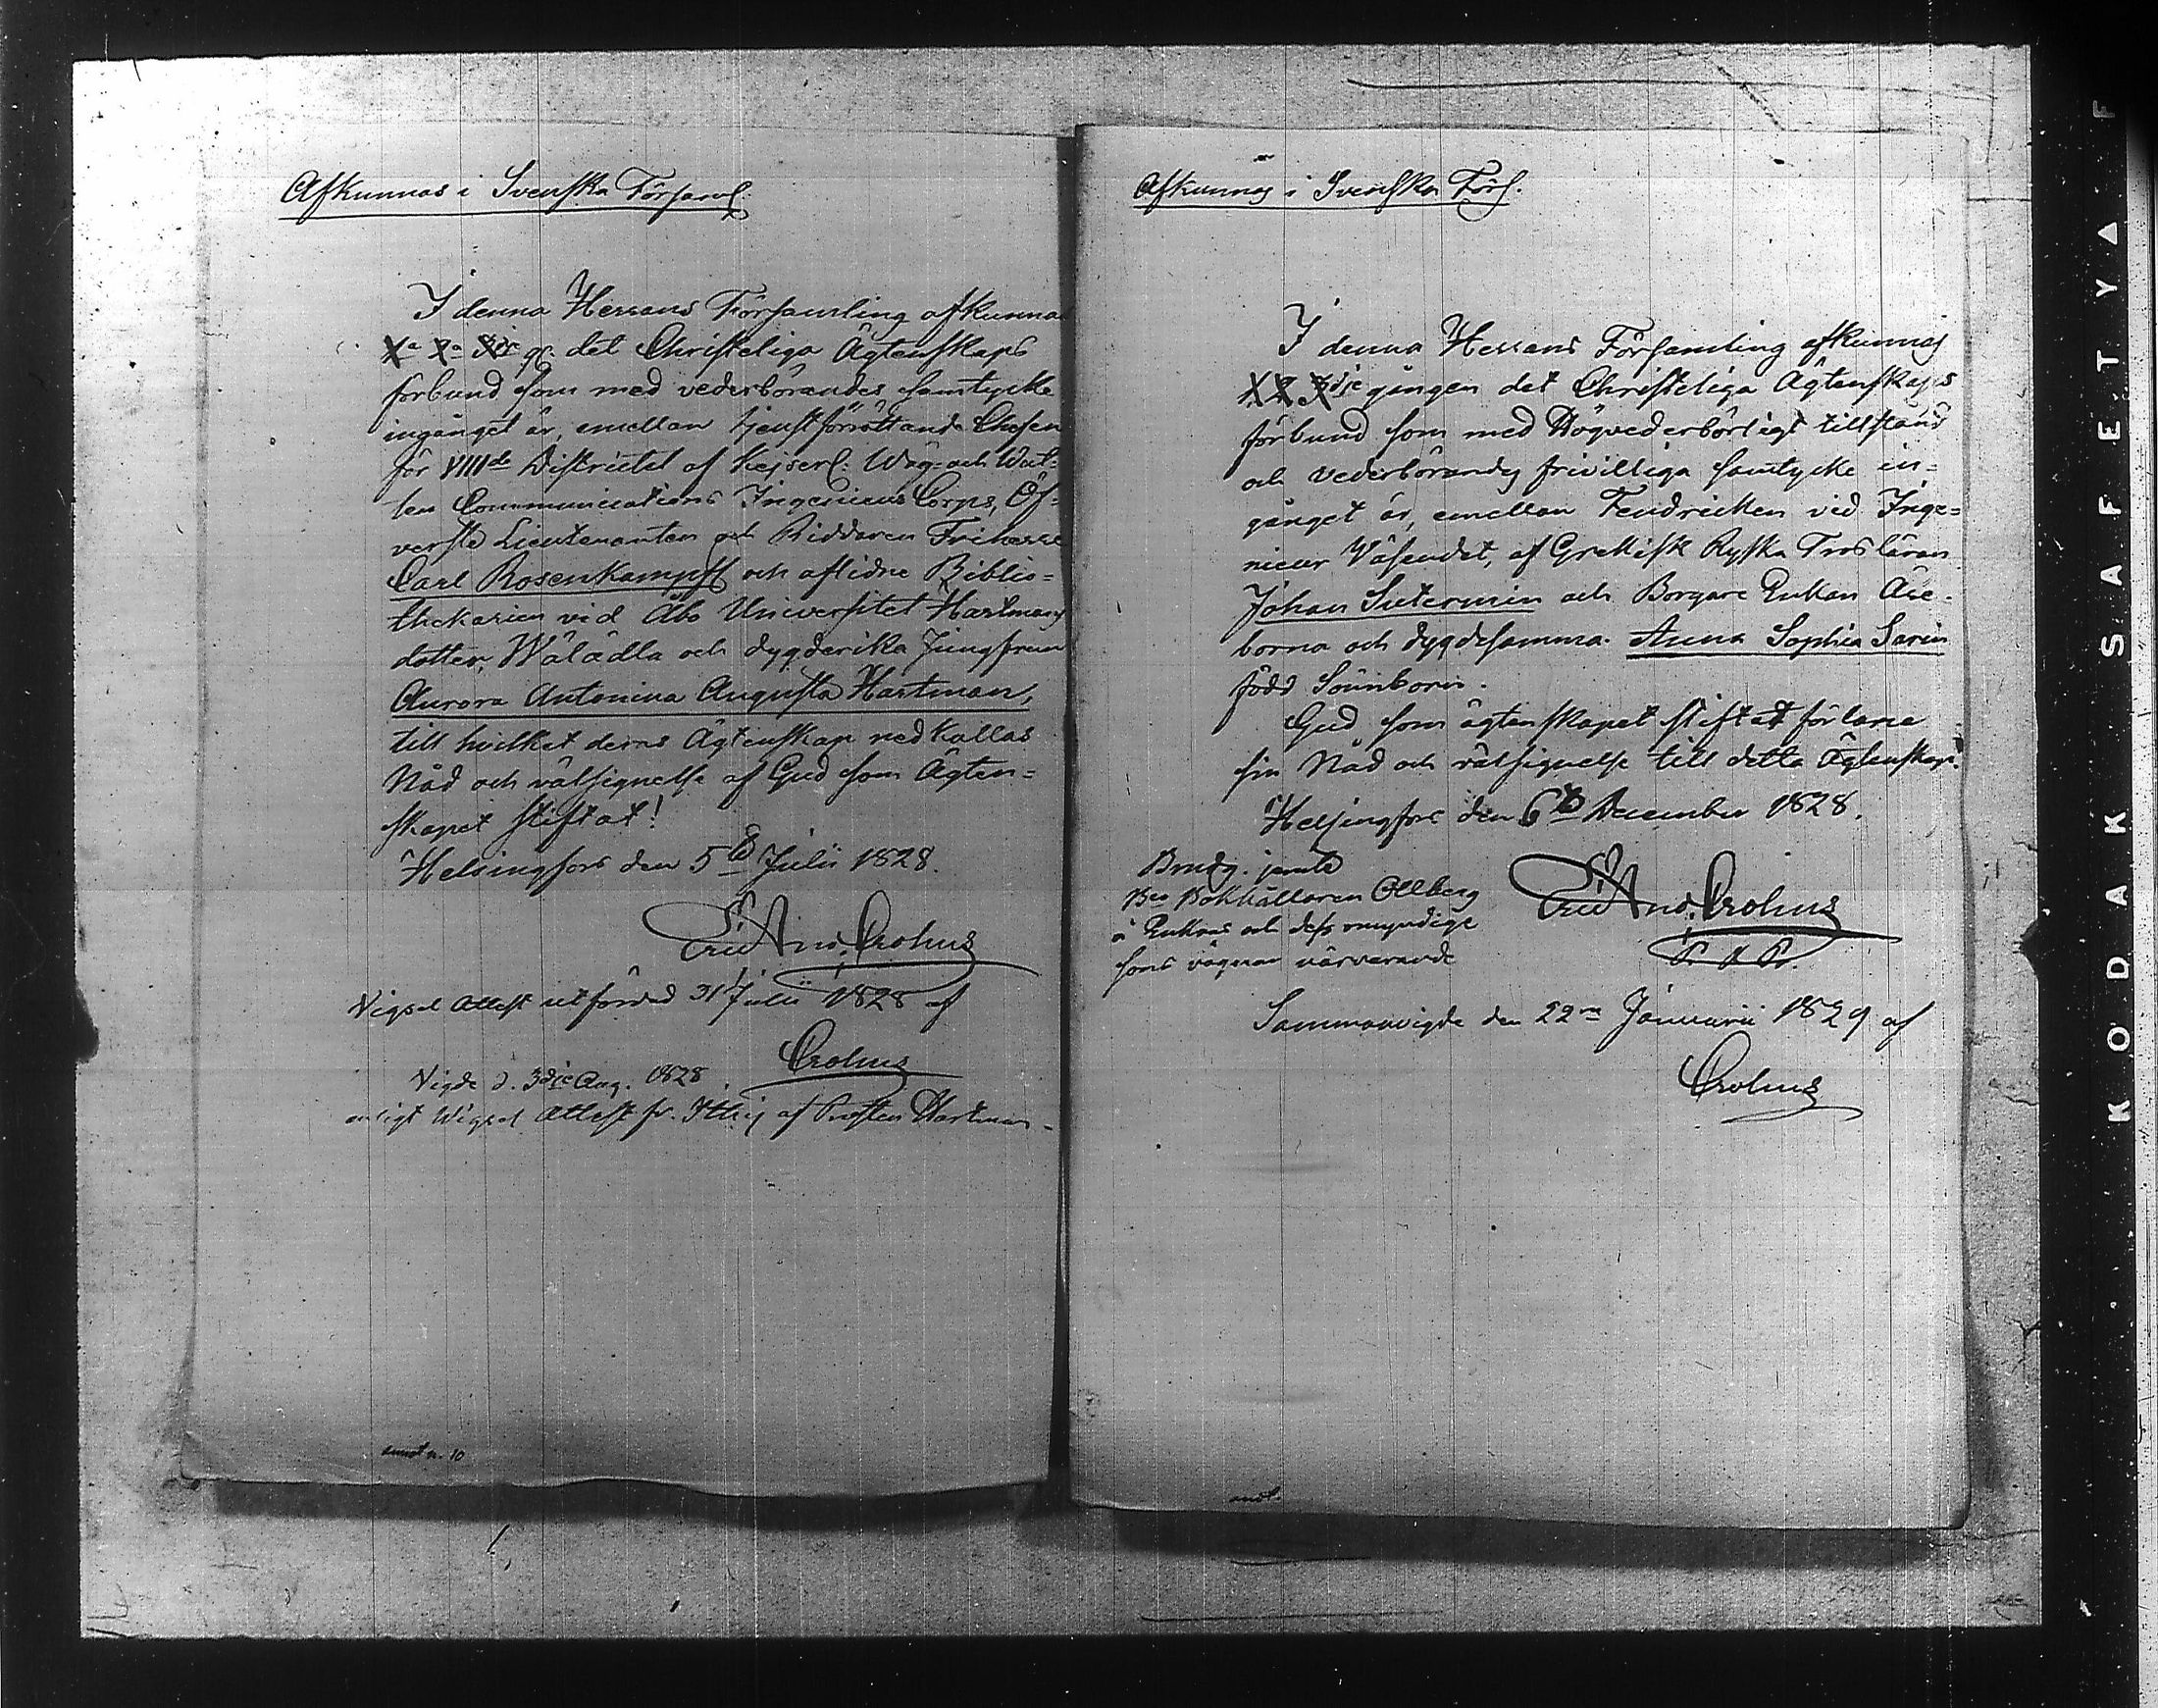 Afkunnas i Svenska Församl.
I denna Herrans Församling afkunnas
1a 2a 3dje gn. det Christeliga Ägtenskaps
förbund som med vederbörandes samtycke
ingånget är, emellan tjenstförrättande Chefen
för VIIIde Districtet af Kejserl: Wäg- och Wat-
ten Communications Ingenieurs Corps, Öf-
verste Lieutenanten och Riddaren Friherre
Carl Rosenkampff och aflidne Biblio-
thekarien vid Åbo Universitet Hartmans
dotter, Wälädla och dygderika Jungfrun
Aurora Antonina Augusta Hartman,
till hvilket deras Ägtenskap nedkallas
Nåd och välsignelse af Gud som Ägten-
skapet stiftat!
Helsingfors den 5te Julii 1828.
Crohns
Vigsel Attest utfärdad 31 Julii 1828 af
Crohns
Vigde d. 3dje Aug. 1828
enligt Wigsel Attest fr. af Prosten Hartman
10
Afkunnas i Svenska Förs.
I denna Herrans Församling afkunnas
1 2 3dje gången det Christeliga Ägtenskaps
förbund som med Högvederbörligt tillstånd
och vederbörandes frivilliga samtycke in-
gånget är, emellan Fendricken vid Inge-
nieur Väsendet, af Grekisk Ryska Trosläran
Johan Sutermin och Borgare Enkan Äre-
borna och dygdesamma Anna Sophia Sarin
född Sönnboris.
Gud som ägtenskapet stiftat förlane
sin Nåd och välsignelse till detta Ägtenskap!
Helsingfors den 6te December 1828.
Brudg. jemte
Bokhållaren Ollberg
å Enkans och dess omyndige
sons vägnar närvarande
Crohns
Sammanvigde den 22ra Januarii 1829 af
Crohns
KODAK SAFETY F